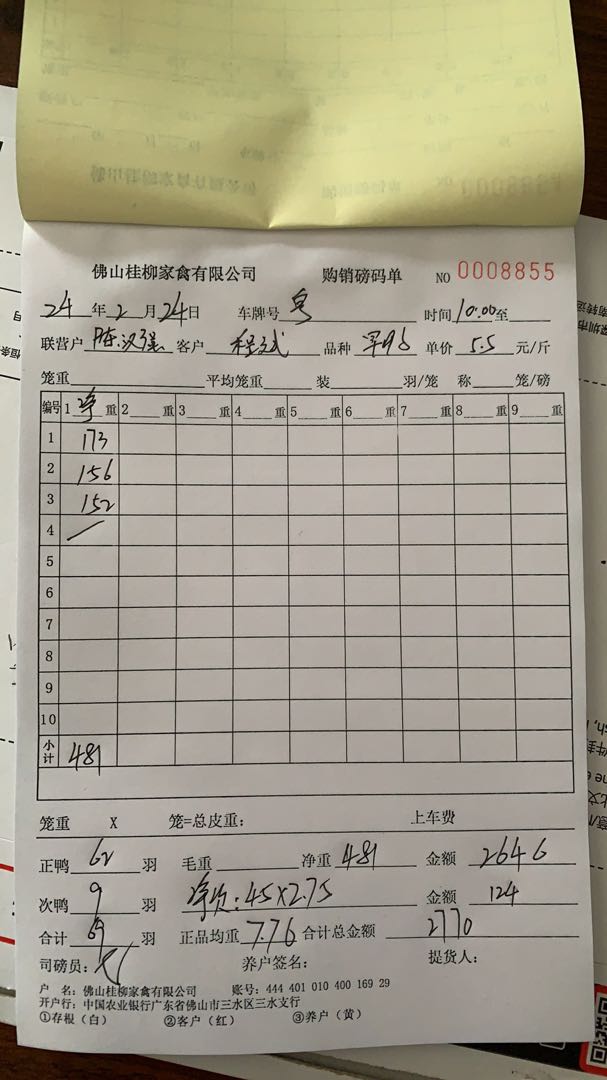 佛山桂柳家禽有限公司 购销磅码单 NO 0008855
24年2月24日 车牌号 粤 时间 10:00至
联营户 陈汉强 客户 程文斌 品种 单价 5.5 元/斤
笼重 平均笼重 装 羽/笼 称 笼/磅
编号 1净重 2重 3重 4重 5重 6重 7重 8重 9重
1 173
2 156
3 152
4 /
5
6
7
8
9
10
小计 481
笼重 X 笼=总皮重: 上车费
正鸭 62 羽 毛重 净重 481 金额 2646
次鸭 9 羽 净次:45X2.75 金额 124
合计 69 羽 正品均重 7.76 合计总金额 2770
司磅员: 养户签名: 提货人:
户 名: 佛山桂柳家禽有限公司 账号: 444 401 010 400 169 29
开户行: 中国农业银行广东省佛山市三水区三水支行
①存根(白) ②客户(红) ③养户(黄)